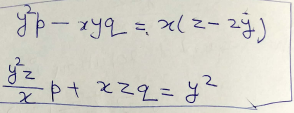 y²p - xyq = x(z - 2y)
y²z/x p + xzq = y²